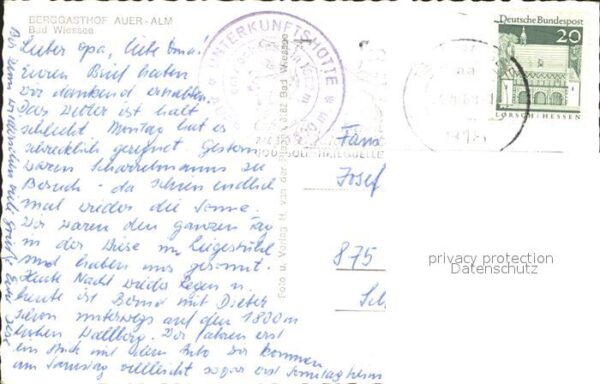 BERGGASTHOF AUER-ALM
Bad Wiessee
Lieber Opa, liebe Oma!
euren Brief haben
wir dankend erhalten.
Das Wetter ist halt
schlecht. Montag hat es
schrecklich geregnet. Gestern
waren Scharrelmanns zu
Besuch - da schien endlich
mal wieder die Sonne.
Wir waren den ganzen Tag
in der Wiese im Liegestuhl
und haben uns gesonnt.
Heute Nacht wieder Regen u.
heute ist Bernd mit Dieter
schon unterwegs auf den 1800 m
hohen Wallberg. Wir fahren erst
ein Stück mit dem Auto. Wir kommen
am Samstag vielleicht sogar erst Sonntag heim
UNTERKUNFTSHÜTTE
Foto u. Verlag H. von der 8182 Bad Wiessee
Deutsche Bundespost
20
LORSCH/HESSEN
Fam
Josef
875
privacy protection
Datenschutz